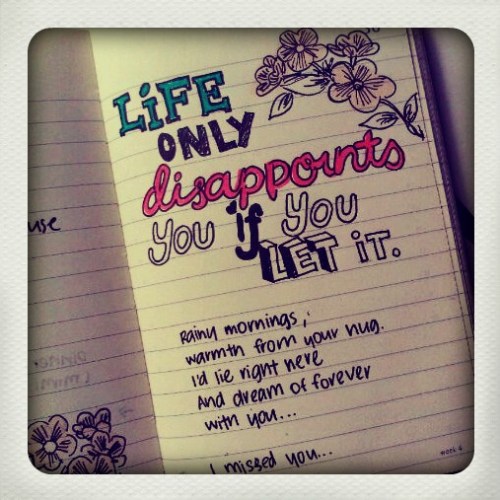 LiFE
ONLY
disappoints
YOU if YOU
LET iT.
Rainy mornings,
warmth from your hug.
I'd lie right here
And dream of forever
with you...
I missed you...
use